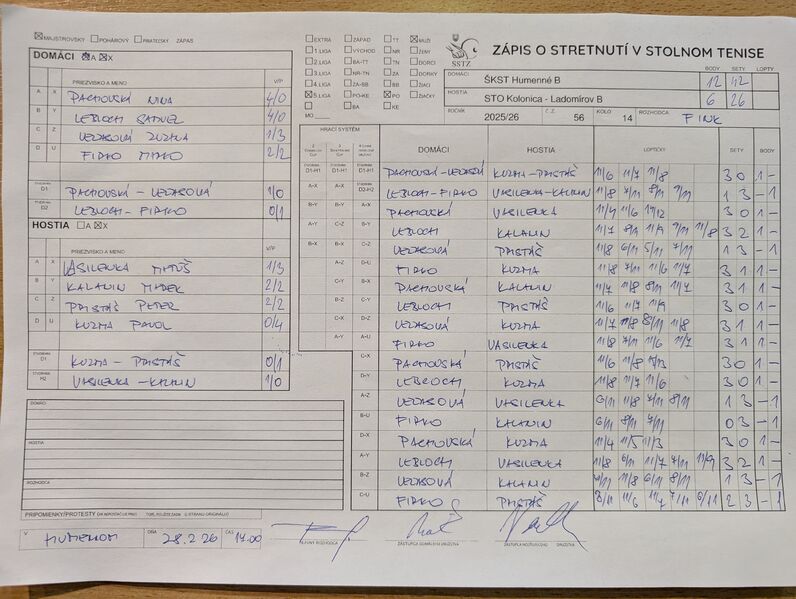 MAJSTROVSKÝ POHÁROVÝ PRIATEĽSKÝ ZÁPAS
DOMÁCI A X
PRIEZVISKO A MENO V/P
A X PACHOVSKÁ NINA 4/0
B Y LEBLOCH SAMUEL 4/0
C Z VEĽASOVÁ ZUZANA 1/3
D U FIRKO MIRKO 2/2
D1 PACHOVSKÁ - VEĽASOVÁ 1/0
D2 LEBLOCH - FIRKO 0/1
HOSTIA A X
PRIEZVISKO A MENO V/P
A X VASILENKA MATÚŠ 1/3
B Y KALANIN MAREK 2/2
C Z PRISTÁŠ PETER 2/2
D U KUZMA PAVOL 0/4
KUZMA - PRISTÁŠ 0/1
H2 VASILENKA - KALANIN 1/0
DOMÁCI
HOSTIA
ROZHODCA
PRIPOMIENKY/PROTESTY
V HUMENNOM DŇA 28.2.26 ČAS 17.00
EXTRA ZÁPAD TT MUŽI
1.LIGA VÝCHOD NR ŽENY
2.LIGA BA-TT TN DORCI
3.LIGA NR-TN ZA DORKY
4.LIGA ZA-BB BB ŽIACI
5.LIGA PO-KE PO ŽIAČKY
BA KE
MO
SSTZ
ZÁPIS O STRETNUTÍ V STOLNOM TENISE
BODY SETY LOPTY
DOMÁCI ŠKST Humenné B 12 42
HOSTIA STO Kolonica - Ladomírov B 6 26
ROČNÍK 2025/26 Č.Z. 56 KOLO 14 ROZHODCA FINK
HRACÍ SYSTÉM DOMÁCI HOSTIA LOPTIČKY SETY BODY
D1-H1 D1-H1 D1-H1 PACHOVSKÁ - VEĽASOVÁ KUZMA - PRISTÁŠ 11/6 11/7 11/8 3 0 1 -
A-X A-X D2-H2 LEBLOCH - FIRKO VASILENKA - KALANIN 11/8 7/11 8/11 9/11 1 3 - 1
B-Y B-Y A-X PACHOVSKÁ VASILENKA 11/4 11/6 14/12 3 0 1 -
A-Y C-Z B-Y LEBLOCH KALANIN 3 2 1 -
B-X B-X C-Z VEĽASOVÁ PRISTÁŠ 11/8 6/11 5/11 7/11 1 3 - 1
A-Z D-U FIRKO KUZMA 11/8 7/11 11/6 11/7 3 1 1 -
C-Y B-X PACHOVSKÁ KALANIN 11/7 11/8 8/11 11/7 3 1 1 -
B-Z C-Y LEBLOCH PRISTÁŠ 11/6 11/7 11/9 3 0 1 -
C-X D-Z VEĽASOVÁ KUZMA 11/7 11/8 8/11 11/8 3 1 1 -
A-Y A-U FIRKO VASILENKA 11/8 7/11 11/6 11/7 3 1 1 -
C-X PACHOVSKÁ PRISTÁŠ 11/6 11/8 3 0 1 -
D-Y LEBLOCH KUZMA 11/8 11/7 11/6 3 0 1 -
A-Z VEĽASOVÁ VASILENKA 6/11 11/8 7/11 8/11 1 3 - 1
B-U FIRKO KALANIN 6/11 8/11 7/11 0 3 - 1
D-X PACHOVSKÁ KUZMA 11/4 11/5 11/3 3 0 1 -
A-Y LEBLOCH VASILENKA 11/8 6/11 11/7 7/11 3 2 1 -
B-Z VEĽASOVÁ KALANIN 11/8 6/11 8/11 1 3 - 1
C-U FIRKO PRISTÁŠ 11/6 7/11 6/11 2 3 - 1